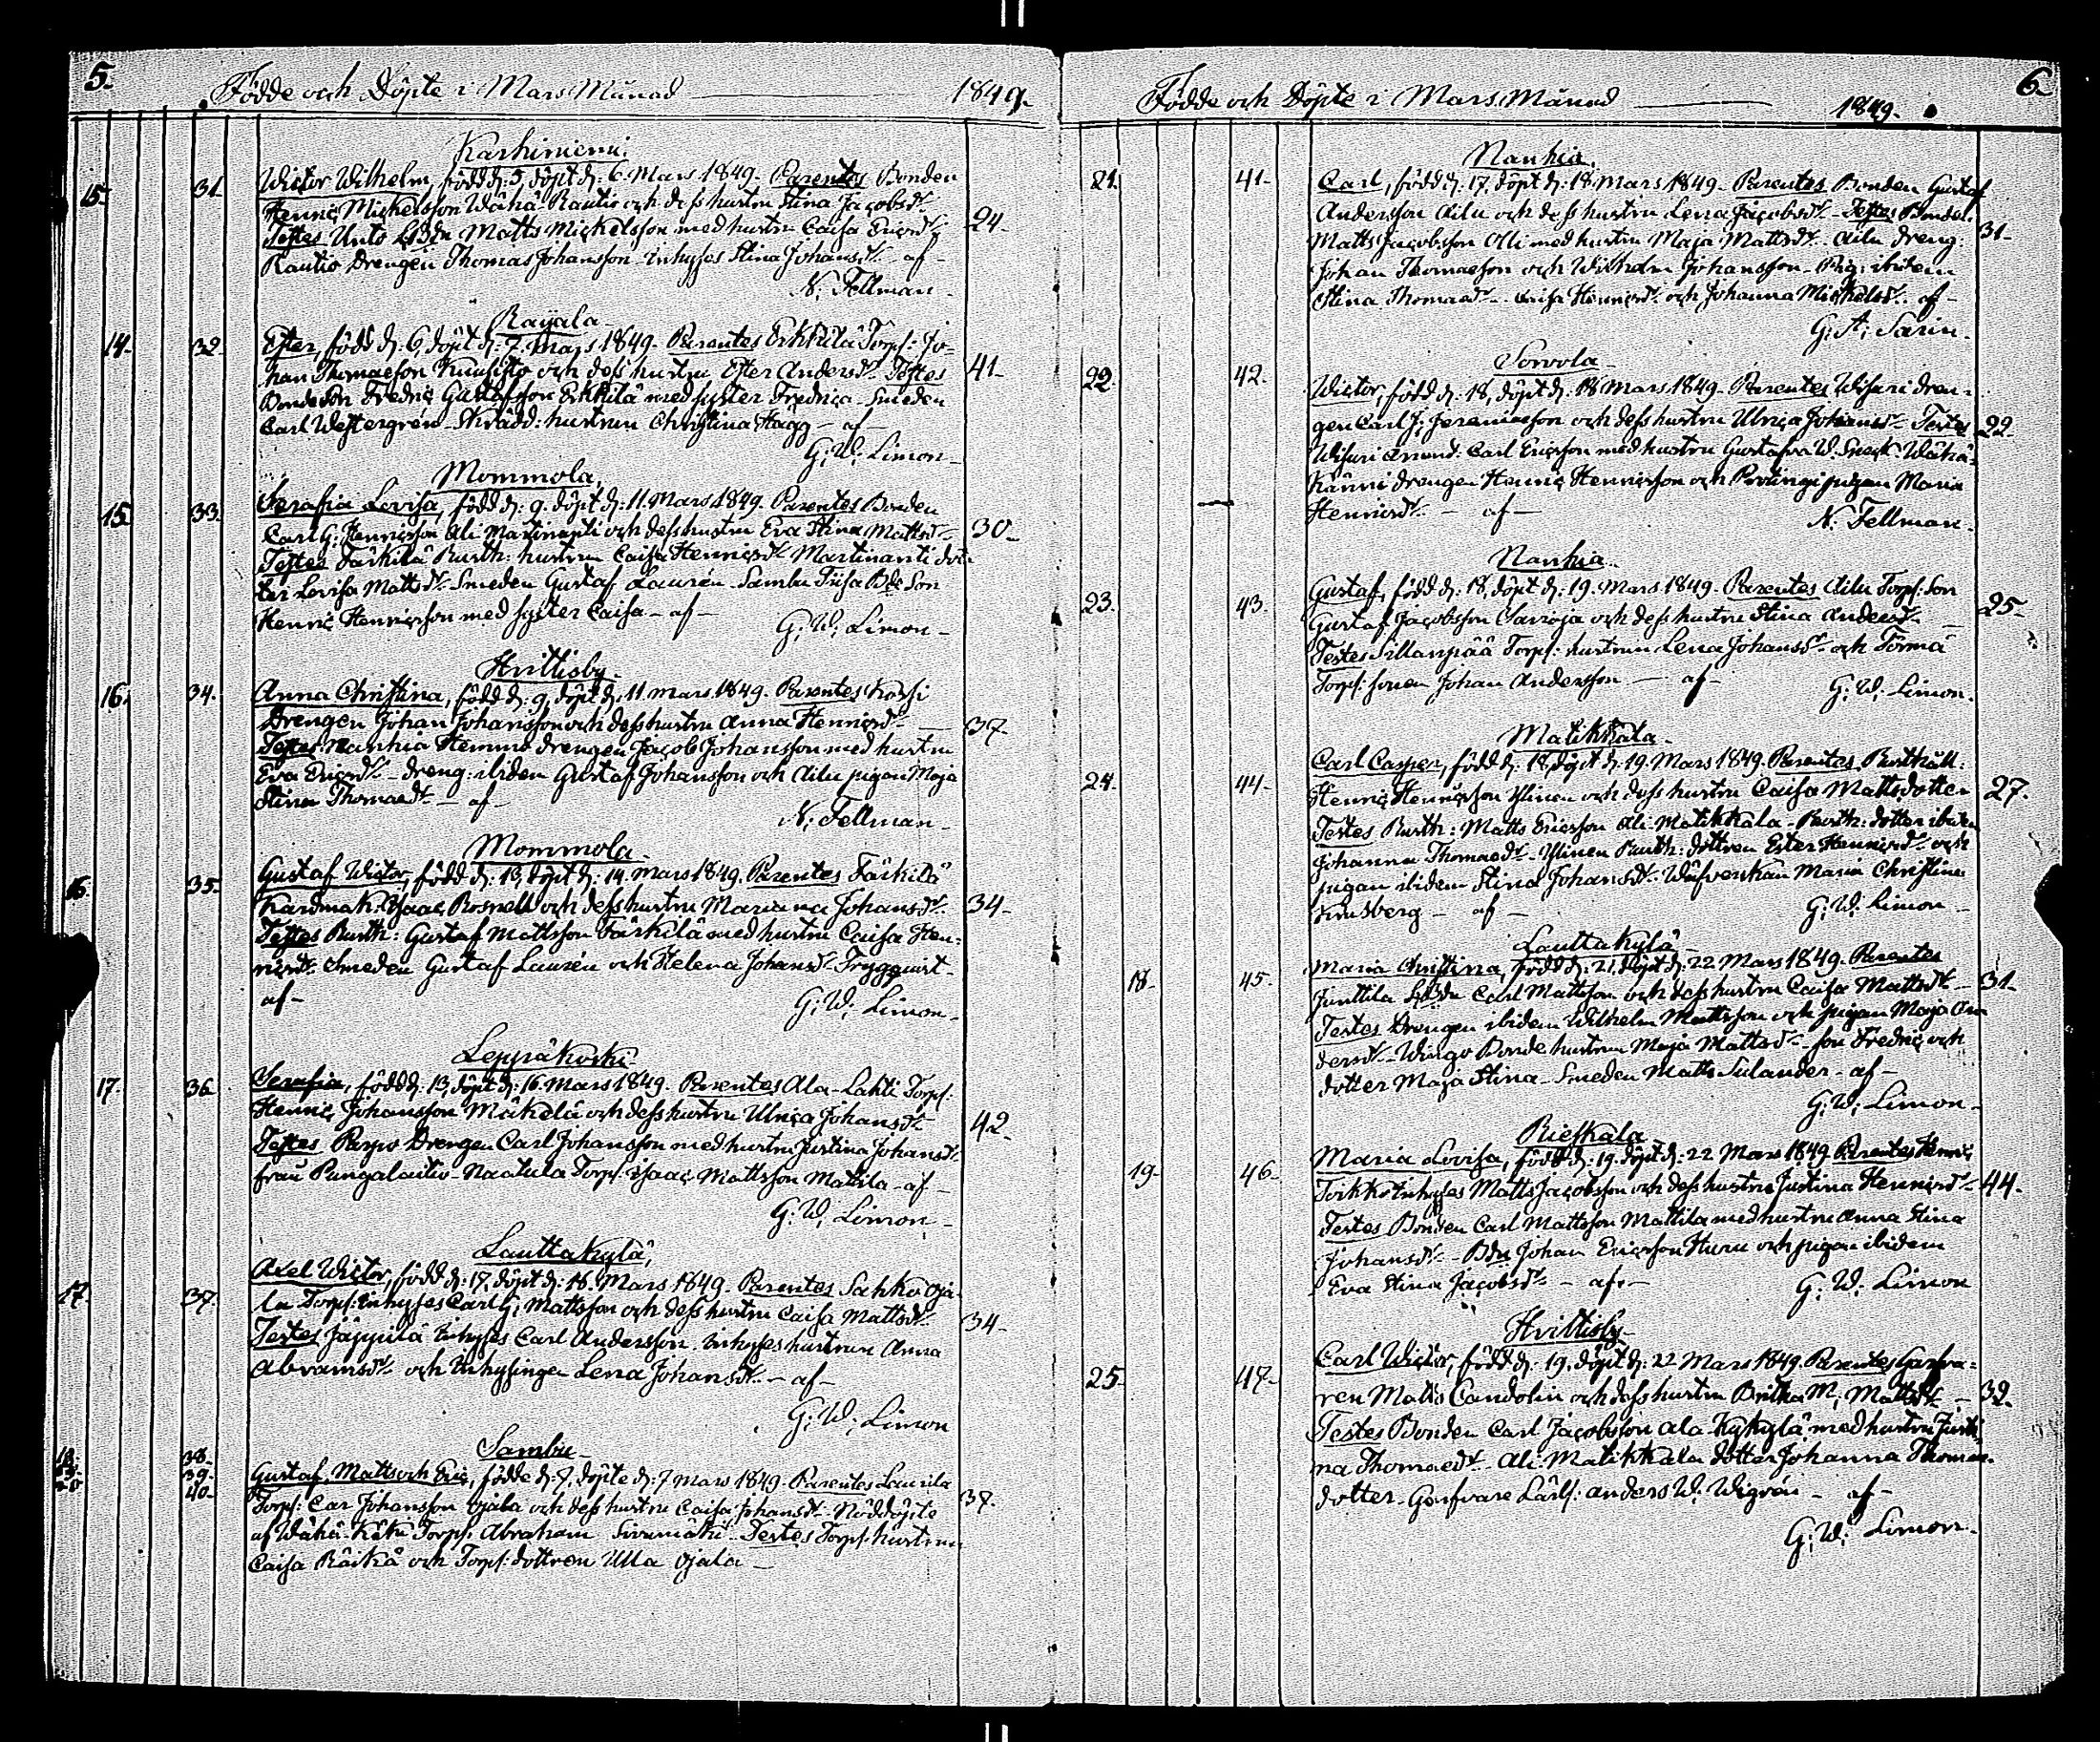 5.
Födde och Döpte i Mars Månad 1849.
Karhiniemi.
15. 31. Wictor Wilhelm, född d: 5, döpt d: 6. Mars 1849. Parentes Bonden
Henric Mickelsson Wähä Rautio och dess hustru Stina Jacobsdr 24.
Testes Unto Matts Mickelsson med hustru Caisa Ericsdr
Rautio Drengen Thomas Johansson Inhyses Stina Johansdr af
N. Fellman
Raijala
14. 32. Ester, född d: 6, döpt d: 7. Mars 1849. Parentes Erkkilä Torp: Jo-
han Thomasson Kuusisto och dess hustru Ester Andersdr Testes 41.
Bonde Son Fredric Gustafsson Erkkilä med syster Fredrica Smeden
Carl Westergrén Skrädd: hustrun Christina Hägg af
G: W: Limon
Mommola
15. 33. Serafia Lovisa, född d: 9. döpt d: 11. Mars 1849. Parentes Bonden
Carl G: Henricsson Ali Martinanti och dess hustru Eva Stina Mattsdr 30.
Testes Färkilä Rusth: hustrun Caisa Henricsdr Martinanti dot-
ter Lovisa Mattsdr Smeden Gustaf Laurén Sambu Tusa Bde Son
Henric Henricsson med syster Caisa af
G: W: Limon
Hvittisby
16. 34. Anna Christina, född d: 9, döpt d: 11. Mars 1849. Parentes
Drengen Johan Johansson och dess hustru Anna Henricsdr 37.
Testes Nanhia Hemmo drengen Jacob Johansson med hustru
Eva Ericsdr dreng: ibidem Gustaf Johansson och Ailu pigan Maja
Stina Thomasdr af
N. Fellman
Mommola
16. 35. Gustaf Wictor, född d: 13, döpt d: 14. Mars 1849. Parentes Färkilä
Kardmak: Isaac Rosnell och dess hustru Mariana Johansdr 34.
Testes Rusth: Gustaf Mattsson Färkilä med hustru Caisa Hen-
ricsdr Smeden Gustaf Laurén och Helena Johansdr Tryggqvist
af
G: W: Limon
Leppäkoski
17. 36. Serafia, född d: 13, döpt d: 16. Mars 1849. Parentes Ala-Lahti Torp:
Henric Johansson Mäkelä och dess hustru Ulrica Johansdr 42.
Testes Drengen Carl Johansson med hustru Justina Johansdr
från Pungalaitio Naatula Torp: Isaac Mattsson Mattila af
G: W: Limon
Lauttakylä
17. 37. Axel Wictor, född d: 17, döpt d: 18. Mars 1849. Parentes Sahko Oja
Torp: Inhyses Carl G: Mattsson och dess hustru Caisa Mattsdr 34.
Testes Jäppilä Inhyses Carl Andersson Inhyses hustrun Anna
Abramsdr och Inhysingen Lena Johansdr af
G: W: Limon
Sambu
18. 19. 20. 38. 39. 40. Gustaf, Matts och Eric, födde d: 7, döpte d: 7 Mars 1849. Parentes Laurila
Torp: Carl Johansson Ojala och dess hustru Caisa Johansdr Nöddöpte 37.
af Wähä-Käki Torp: Abraham Testes Torp: hustrun
Caisa Räikä och Torp: dottren Ulla Ojala
6
Födde och Döpte i Mars Månad 1849.
Nanhia.
21. 41. Carl, född d: 17, döpt d: 18. Mars 1849. Parentes Bonden Gustaf
Andersson Ailu och dess hustru Lena Jacobsdr Testes Bonden 31.
Matts Jacobsson Olli med hustru Maja Mattsdr Ailu dreng:
Johan Thomasson och Wilhelm Johansson Pig: ibidem
Stina Thomasdr Caisa Henricsdr och Johanna Mickelsdr af
G: A: Sarin.
Sorvola
22. 42. Wictor, född d: 18, döpt d: 18 Mars 1849. Parentes Wisuri dren-
gen Carl J: Jeremiasson och dess hustru Ulrica Johansdr Testes 22.
Wisuri Carl Ericsson med hustru Gustafva W. Wähä-
Känni drengen Henric Henricsson och pigan Maria
Henricsdr af
N. Fellman.
Nanhia
23. 43. Gustaf, född d: 18, döpt d: 19. Mars 1849. Parentes Ailu Torp: Son
Gustaf Jacobsson Savioja och dess hustru Stina Andersdr 25.
Testes Sillanpää Torp: hustrun Lena Johansdr och Törmä
Torp: sonen Johan Andersson af
G: W: Limon.
Matikkala
24. 44. Carl Casper, född d: 18, döpt d: 19. Mars 1849. Parentes Rusthåll:
Henric Henricsson Ylinen och dess hustru Caisa Mattsdotter 27.
Testes Rusth: Matts Ericsson Ali Matikkala Rusth: dotter ibidem
Johanna Thomasdr Ylinen Rusth: dottren Ester Henricsdr och
pigan ibidem Stina Johansdr Wäfverskan Maria Christina
Krusberg af
G: W: Limon
Lauttakylä
18. 45. Maria Christina, född d: 21, döpt d: 22 Mars 1849. Parentes
Junttila Carl Mattsson och dess hustru Caisa Mattsdr 31.
Testes Drengen ibidem Wilhelm Mattsson och pigan Maja An-
dersdr Wingo Bonde hustrun Maja Mattsdr son Fredric och
dotter Maja Stina Smeden Matts Sulander af
G: W: Limon
Rieskala
19. 46. Maria Lovisa, född d: 19. döpt d: 22 Mars 1849. Parentes
Inhyses Matts Jacobsson och dess hustru Justina Henricsdr 44.
Testes Bonden Carl Mattsson Mattila med hustru Anna Stina
Johansdr Bdn Johan Ericsson Huru och pigan ibidem
Eva Stina Jacobsdr af
G: W: Limon
Hvittisby
25. 47. Carl Wictor, född d: 19. döpt d: 22 Mars 1849. Parentes Garfva-
ren Matts Candolin och dess hustru Britha M: Mattsdr 32.
Testes Bonden Carl Jacobsson Ala-Kykylä med hustru Justi-
na Thomasdr Ali Matikkala dotter Johanna Thomas-
dotter Garfvare Lärl: Anders W. Wigrén af
G: W: Limon.